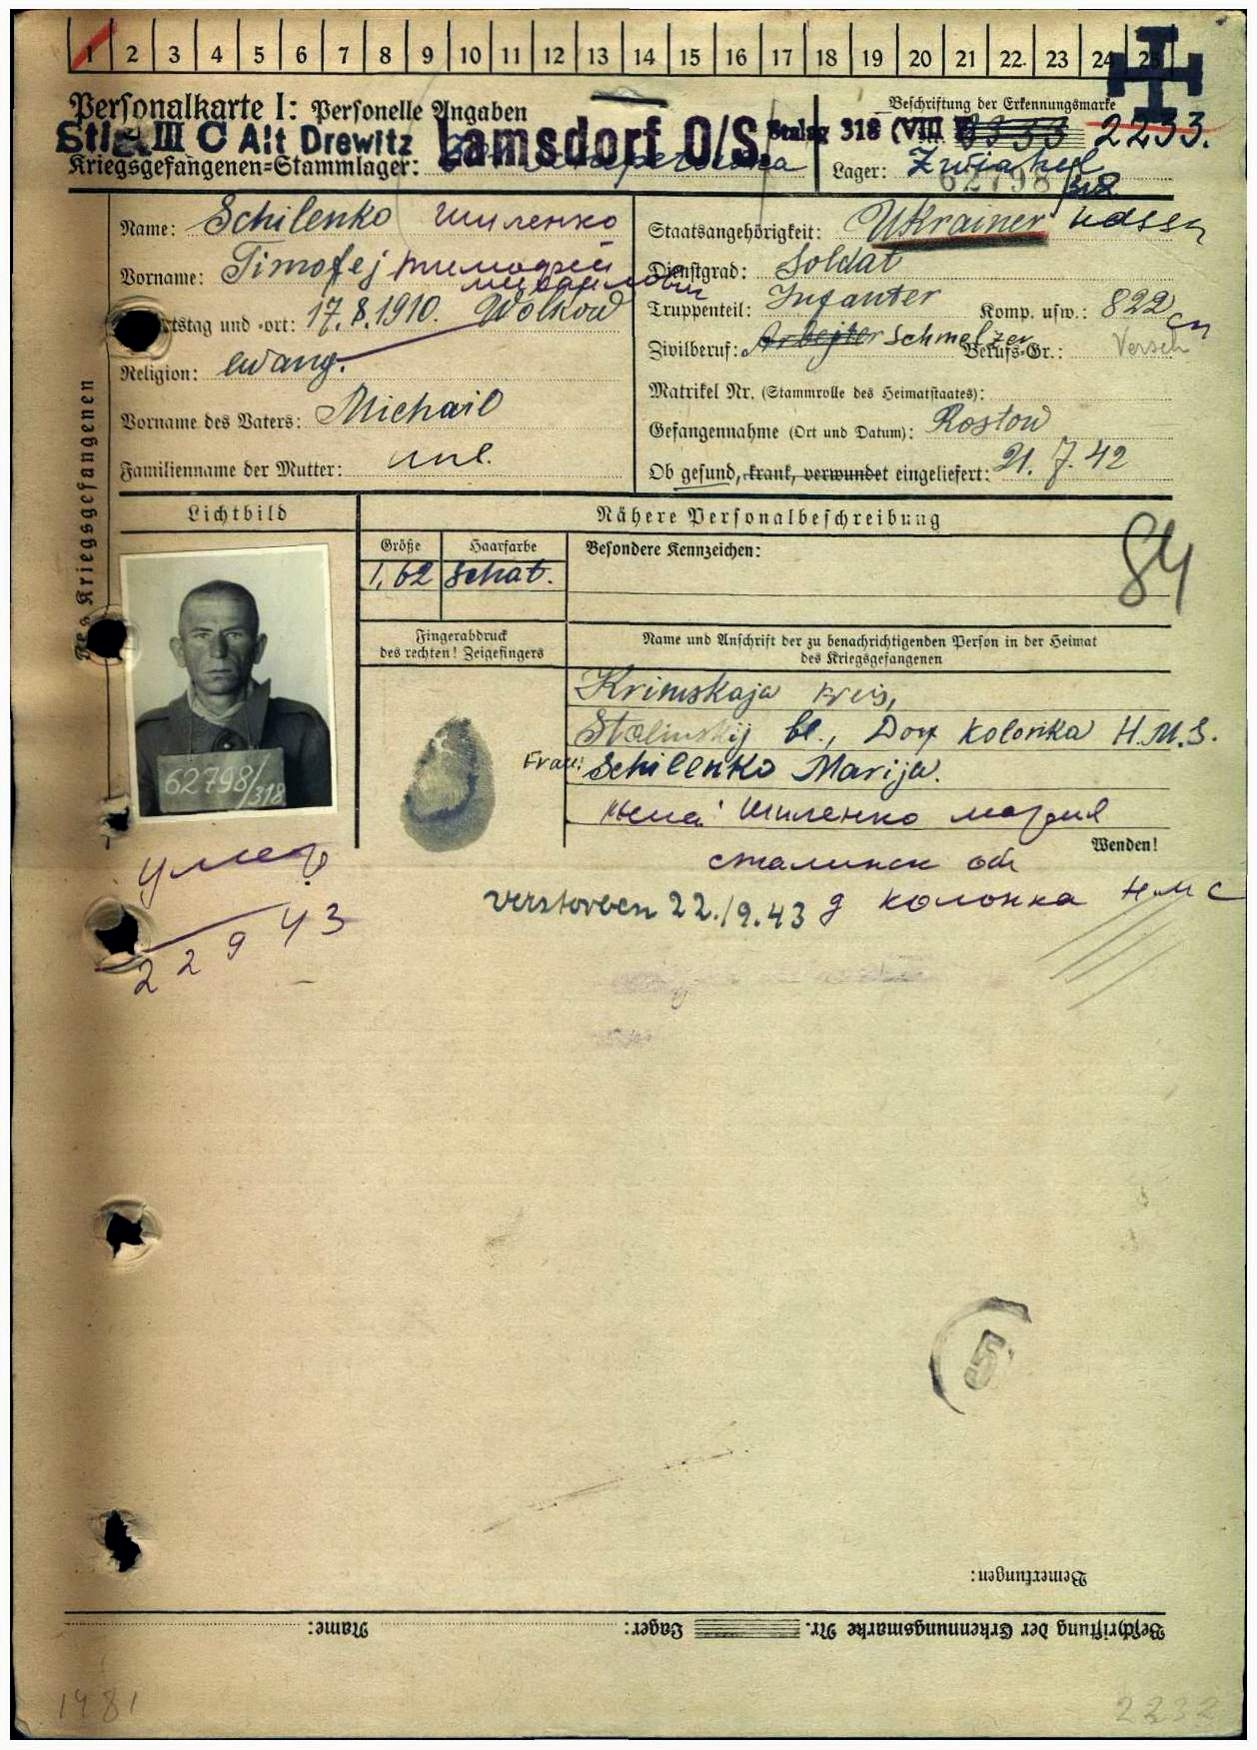 1 2 3 4 5 6 7 8 9 10 11 12 13 14 15 16 17 18 19 20 21 22 23 24 25
Personalkarte I: Personelle Angaben
Beschriftung der Erkennungsmarke
III C Alt Drewitz Lamsdorf O/S Stalag 318 (VIII 2233.
Kriegsgefangenen-Stammlager:
Lager: Zwiahel
62798/318
Name: Schilenko Шиленко
Staatsangehörigkeit: Ukrainer
Vorname: Timofej Тимофей
Михайлович
Dienstgrad: Soldat
tstag und -ort: 17.8.1910. Wolkow
Truppenteil: Infanter Komp. usw.: 822 сп
Zivilberuf: Arbeiter Schmelzer Berufs-Gr.: Versch
Religion: ewang.
Matrikel Nr. (Stammrolle des Heimatstaates):
Vorname des Vaters: Michail
Gefangennahme (Ort und Datum): Rostow
Familienname der Mutter:
21.7.42
Ob gesund, krank, verwundet eingeliefert:
des Kriegsgefangenen
Lichtbild
Nähere Personalbeschreibung
Größe Haarfarbe Besondere Kennzeichen:
84
1,62 schat.
Fingerabdruck
des rechten! Zeigefingers
Name und Anschrift der zu benachrichtigenden Person in der Heimat
des Kriegsgefangenen
Krimskaja kreis,
Stalinskij bl., Dorf Kolonka H.M.S.
Frau: Schilenko Marija.
62798/318
жена Шиленко Мария
Wenden!
умер
сталинск об
verstorben 22./9.43 д колонка Н М С
22 9 43
5
Bemerkungen:
Beschriftung der Erkennungsmarke Nr. Lager: Name:
1981
2232